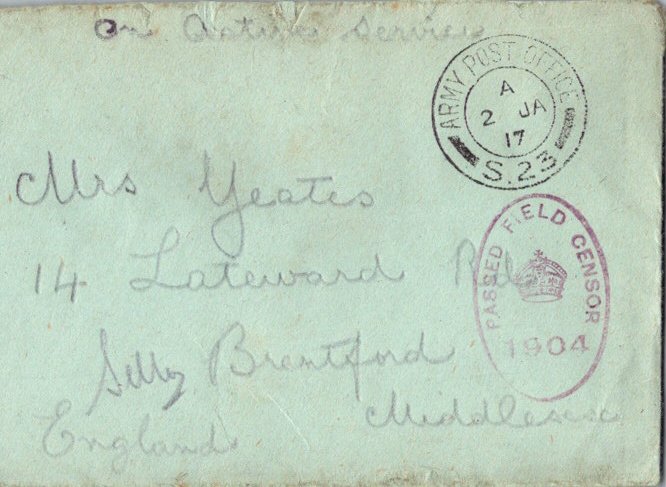 On Active Service
ARMY POST OFFICE
A
2 JA
17
S.23
Mrs Yeates
14 Lateward Rd
PASSED FIELD CENSOR
1904
Brentford
Middlesex
England